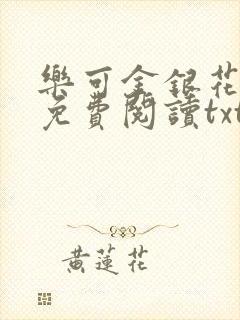 樂可金銀花
免費閱讀txt
黃蓮花